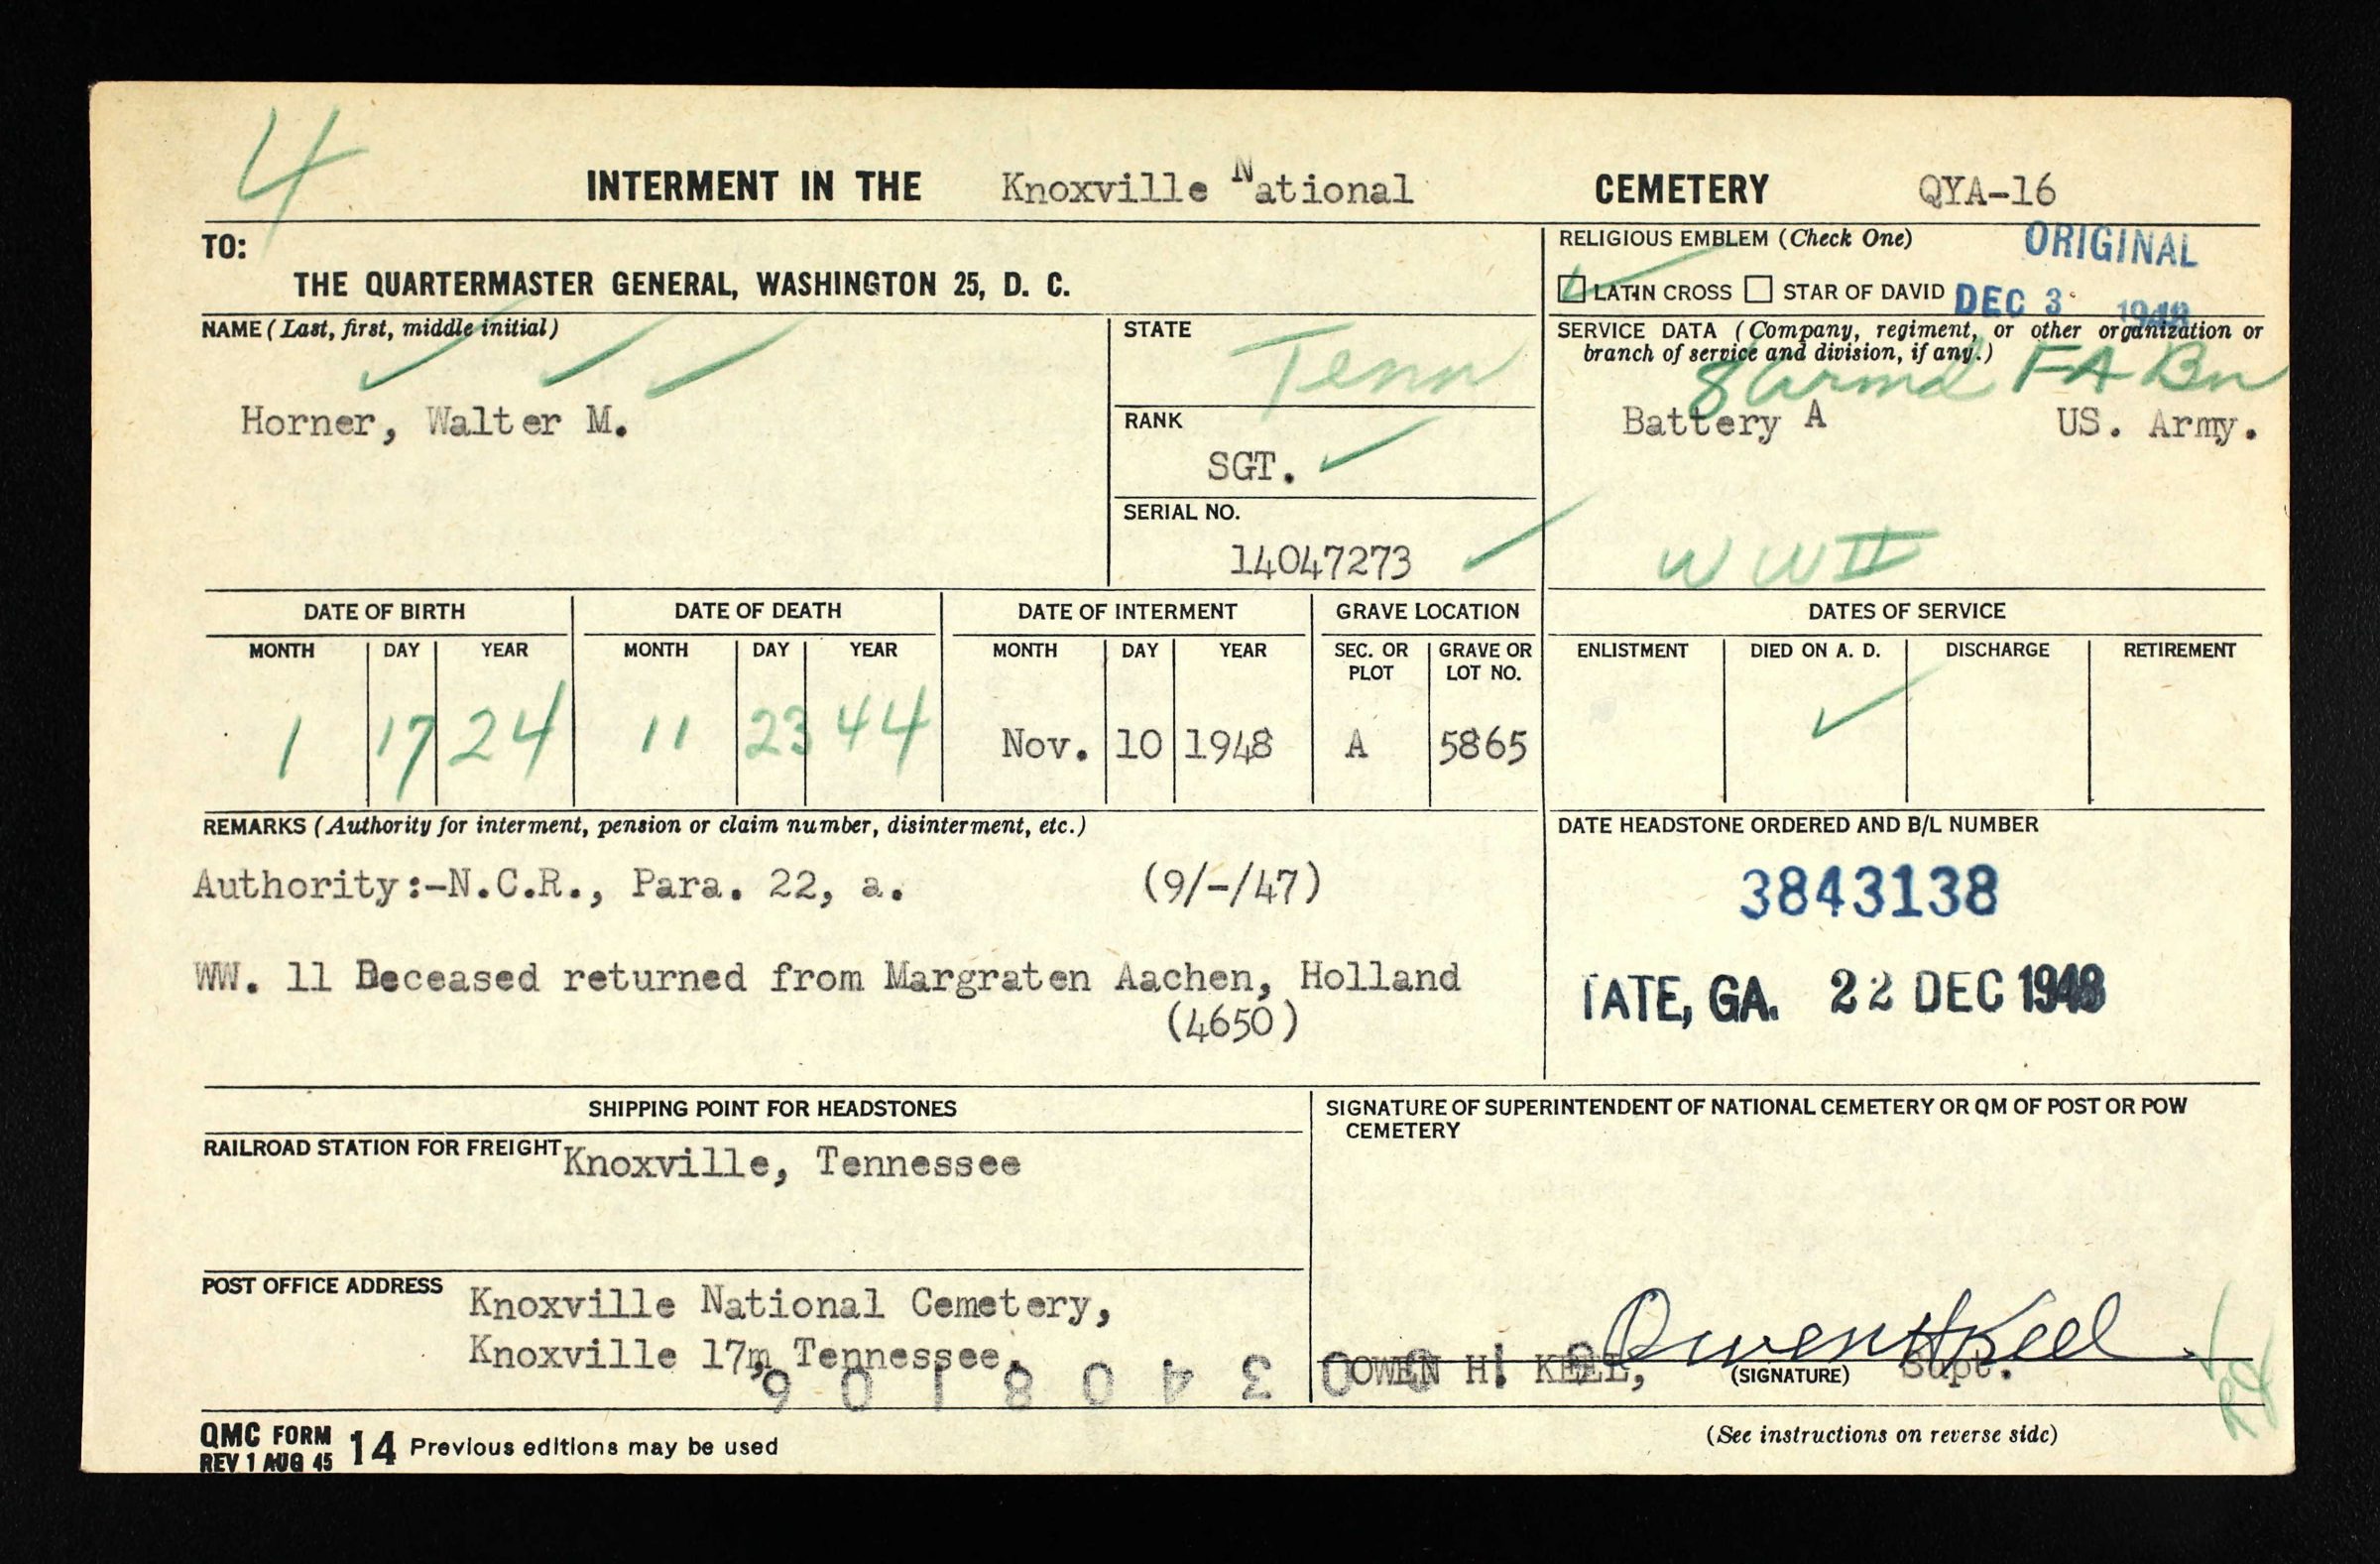 4
INTERMENT IN THE Knoxville National CEMETERY QYA-16
TO:
THE QUARTERMASTER GENERAL, WASHINGTON 25, D. C.
RELIGIOUS EMBLEM (Check One)
ORIGINAL
LATIN CROSS STAR OF DAVID
DEC 3 1948
NAME (Last, first, middle initial)
Horner, Walter M.
STATE
Tenn
RANK
SGT.
SERIAL NO.
14047273
SERVICE DATA (Company, regiment, or other organization or
branch of service and division, if any.)
Armd FA Bn
Battery A US. Army.
WW II
DATE OF BIRTH DATE OF DEATH DATE OF INTERMENT GRAVE LOCATION DATES OF SERVICE
MONTH DAY YEAR MONTH DAY YEAR MONTH DAY YEAR SEC. OR PLOT GRAVE OR LOT NO. ENLISTMENT DIED ON A. D. DISCHARGE RETIREMENT
1 17 24 11 23 44 Nov. 10 1948 A 5865
REMARKS (Authority for interment, pension or claim number, disinterment, etc.)
Authority:-N.C.R., Para. 22, a. (9/-/47)
WW. 11 Deceased returned from Margraten Aachen, Holland
(4650)
DATE HEADSTONE ORDERED AND B/L NUMBER
3843138
TATE, GA. 22 DEC 1948
SHIPPING POINT FOR HEADSTONES
RAILROAD STATION FOR FREIGHT Knoxville, Tennessee
POST OFFICE ADDRESS Knoxville National Cemetery,
Knoxville 17m Tennessee.
SIGNATURE OF SUPERINTENDENT OF NATIONAL CEMETERY OR QM OF POST OR POW
CEMETERY
Owen H Keel
OWEN H. KEEL, (SIGNATURE) Supt.
QMC FORM 14 Previous editions may be used
REV 1 AUG 45
(See instructions on reverse side)